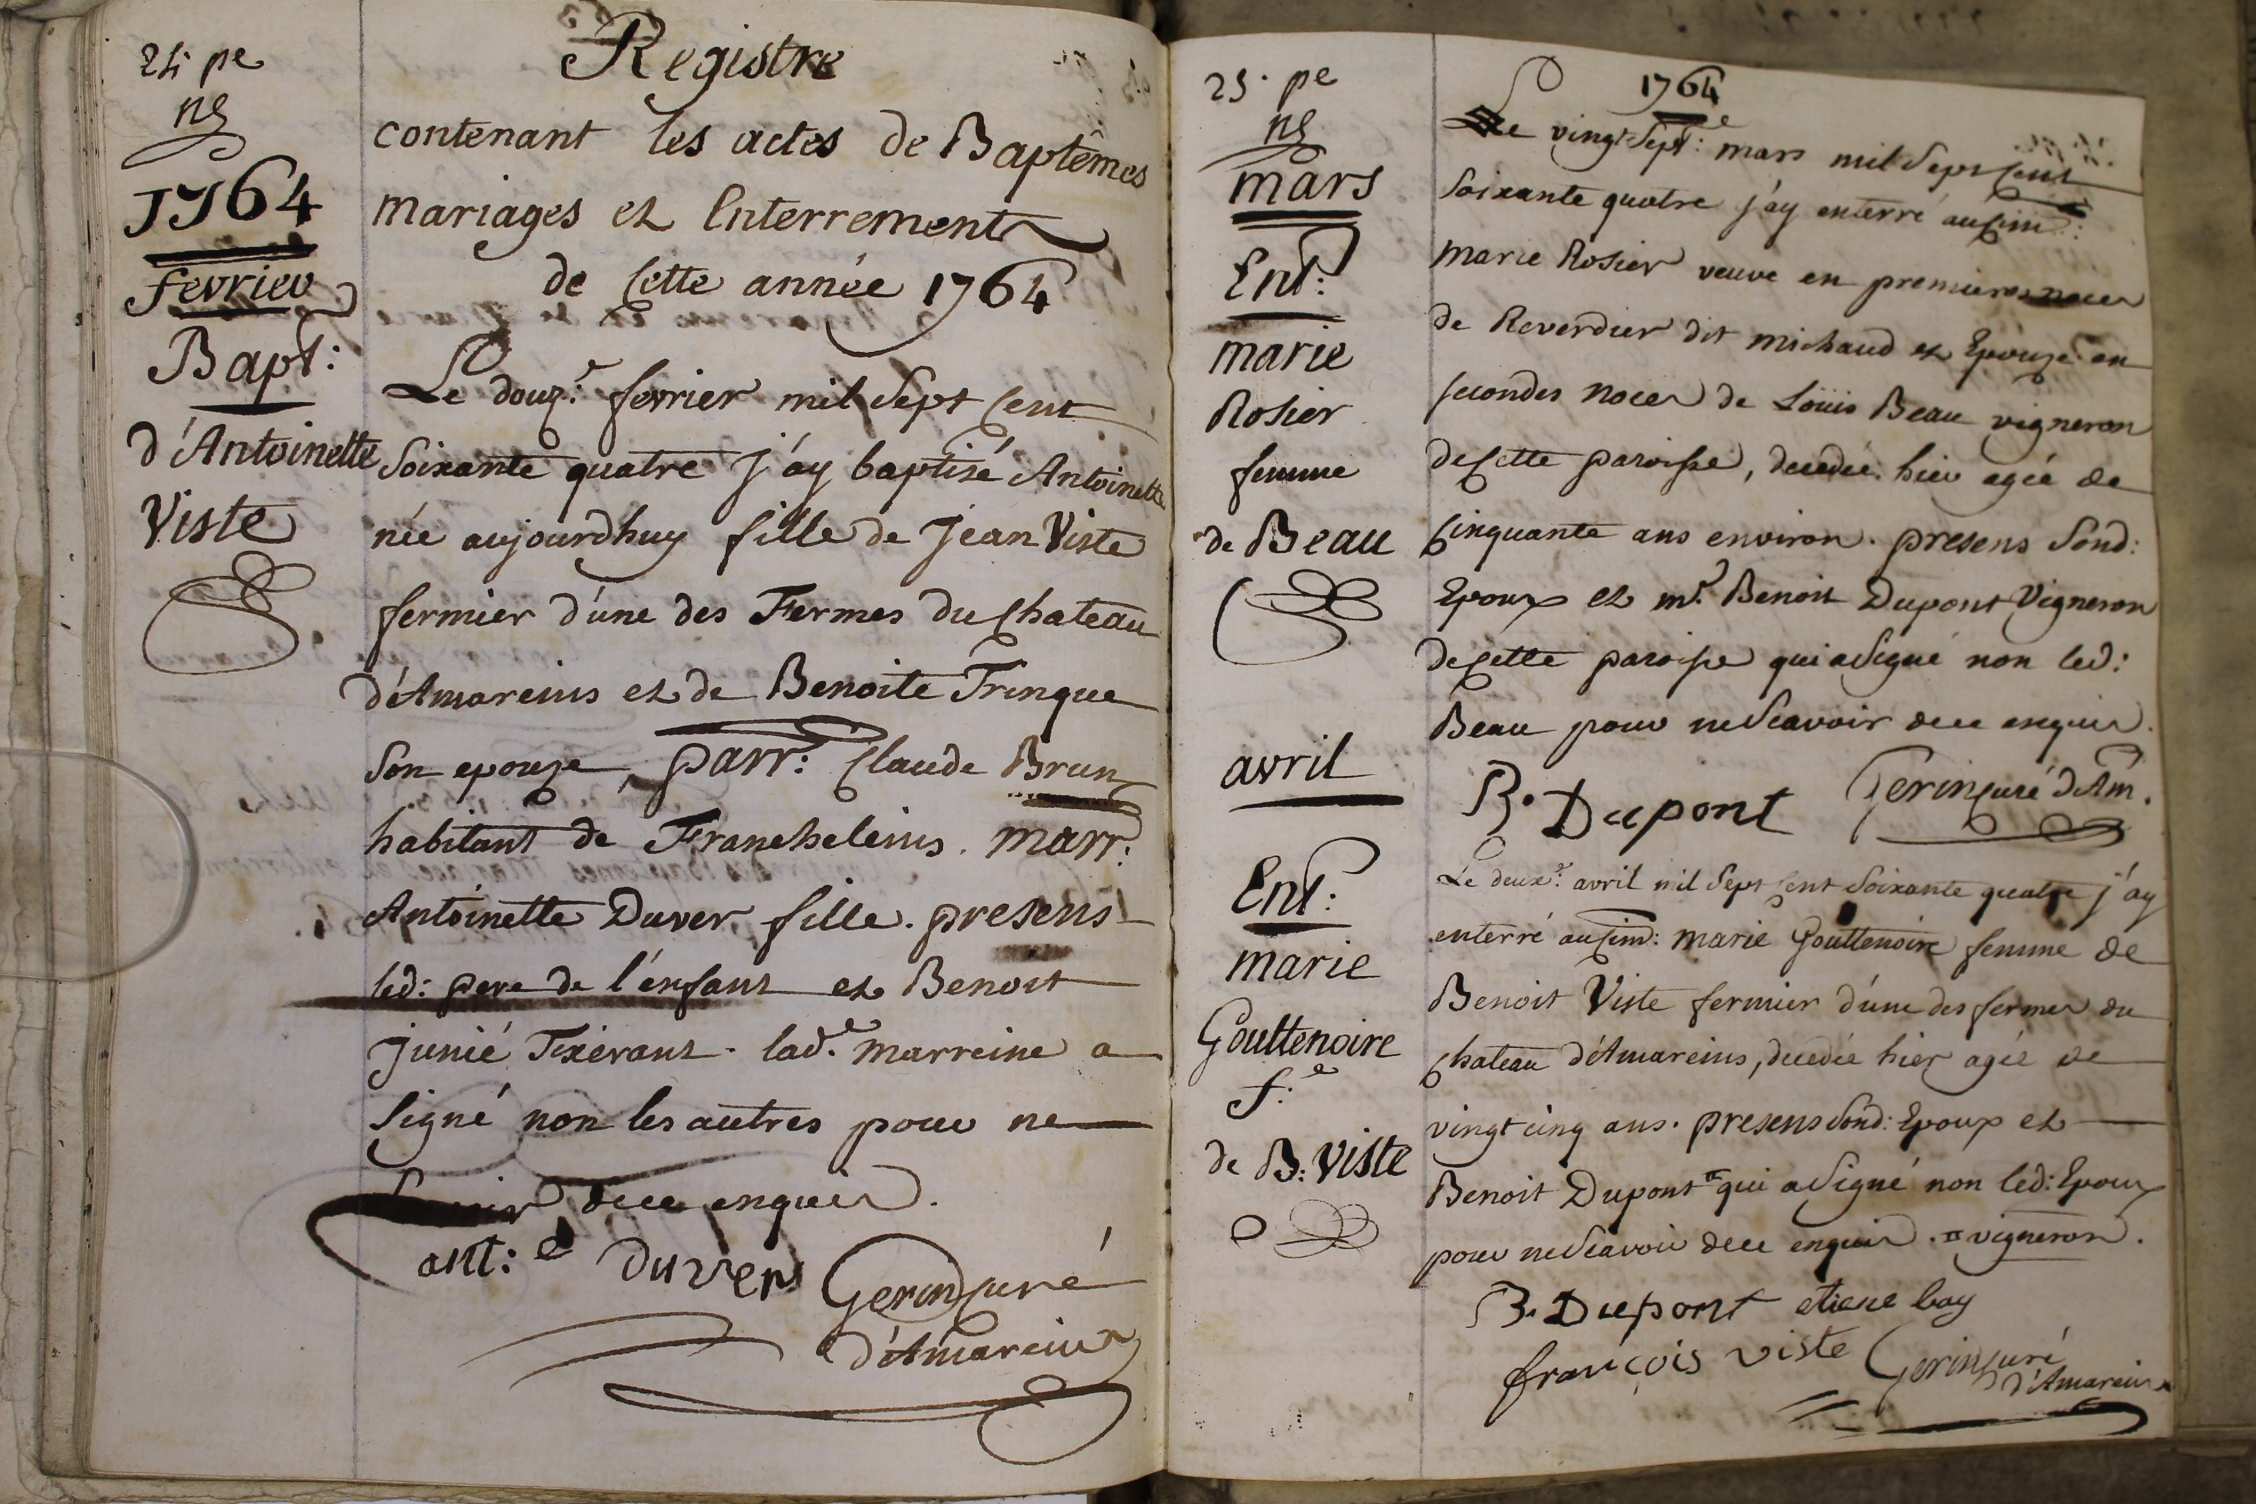 24: pe
ng
1764
fevrier
Bapt:
d'Antoinette
Viste
Registre
contenant les actes de Baptêmes
mariages et Enterrements
de Cette année 1764
Le douz.e fevrier mil Sept Cent
Soixante quatre j'ay baptisé Antoinette
née aujourdhuy fille de Jean Viste
fermier d'une des Fermes du Chateau
d'Amareins et de Benoite Trinque
Son epouze, parr: Claude Brun
habitant de Franchelins. marr:
Antoinette Duver fille. presens
led: pere de l'enfant et Benoit
junié Tixerant. lad.e marreine a
Signé non les autres pour ne
Scavoir dece enquis.
ant:e duver Gerin Curé
d'Amareins
25. pe
ng
mars
Ent:
marie
Rosier
femme
de Beau
avril
Ent:
marie
Gouttenoire
f.e
de B: Viste
1764
Le vingt Sept:e mars mil Sept Cent
Soixante quatre j'ay enterré au Cim:
marie Rosier veuve en premieres noces
de Reverdier dit michaud et Epouze en
secondes noces de Loüis Beau vigneron
de Cette paroisse, decedée hier agée de
Cinquante ans environ. presens Sond:
Epoux et mr. Benoit Dupont Vigneron
de Cette paroisse qui a Signé non led:
Beau pour ne Scavoir dece enquis.
B. Dupont Gerin Curé d'Am.
Le deux.e avril mil Sept Cent Soixante quatre j'ay
enterré au Cim: marie Gouttenoire femme de
Benoit Viste fermier d'une des fermes du
Chateau d'Amareins, decedée hier agée de
vingt cinq ans. presens Sond: Epoux et
Benoit Dupont # qui a Signé non led: Epoux
pour ne Scavoir dece enquis. # vigneron.
B. Dupont etiene bay
françois viste Gerin Curé
d'Amareins